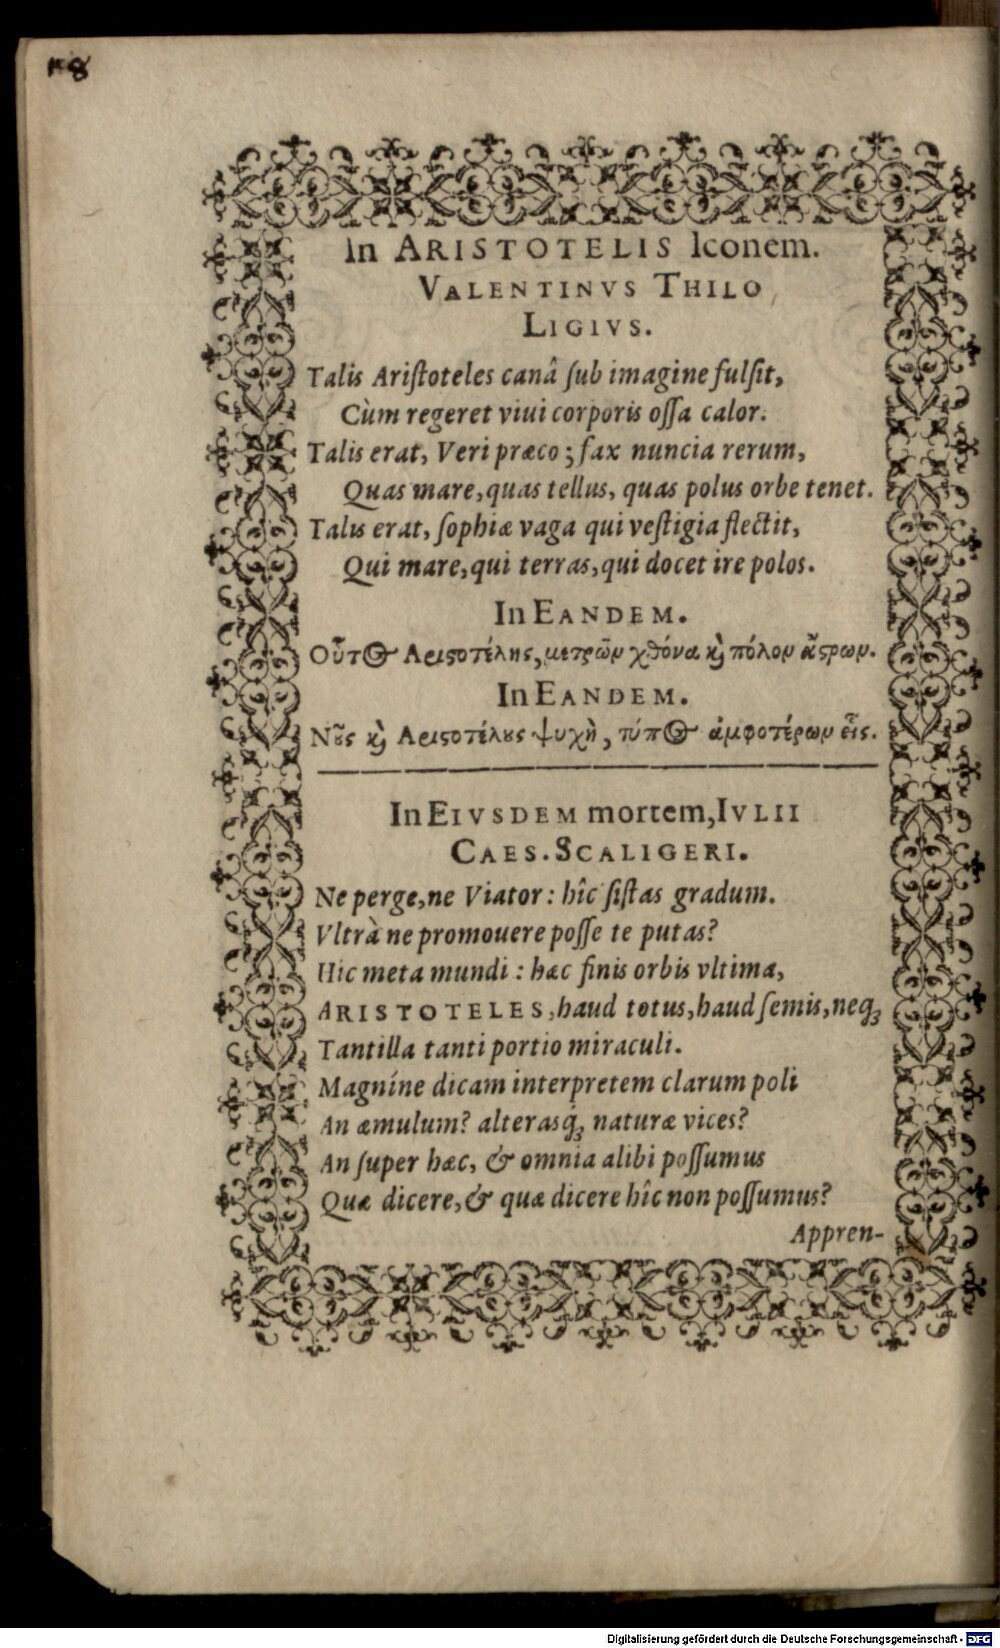 8
In ARISTOTELIS Iconem.
VALENTINVS THILO
LIGIVS.
Talis Ariſtoteles canâ ſub imagine fulſit,
Cùm regeret viui corporis oſſa calor.
Talis erat, Veri præco; fax nuncia rerum,
Quas mare, quas tellus, quas polus orbe tenet.
Talis erat, ſophiæ vaga qui veſtigia flectit,
Qui mare, qui terras, qui docet ire polos.
In EANDEM.
Οὗτος Αριϛοτέλης, μετρῶν χθόνα ϗ πόλον ἄϛρων.
In EANDEM.
Νοῦς ϗ Αριϛοτέλους ψυχὴ, τύπος ἀμφοτέρων εἷς.
In EIVSDEM mortem, IVLII
CAES. SCALIGERI.
Ne perge, ne Viator: hîc ſiſtas gradum.
Vltrà ne promouere poſſe te putas?
Hic meta mundi: hæc finis orbis vltima,
ARISTOTELES, haud totus, haud ſemis, neqꝫ
Tantilla tanti portio miraculi.
Magníne dicam interpretem clarum poli
An æmulum? alterasq́ꝫ naturæ vices?
An ſuper hæc, & omnia alibi poſſumus
Quæ dicere, & quæ dicere hîc non poſſumus?
Appren-
Digitalisierung gefördert durch die Deutsche Forschungsgemeinschaft - DFG